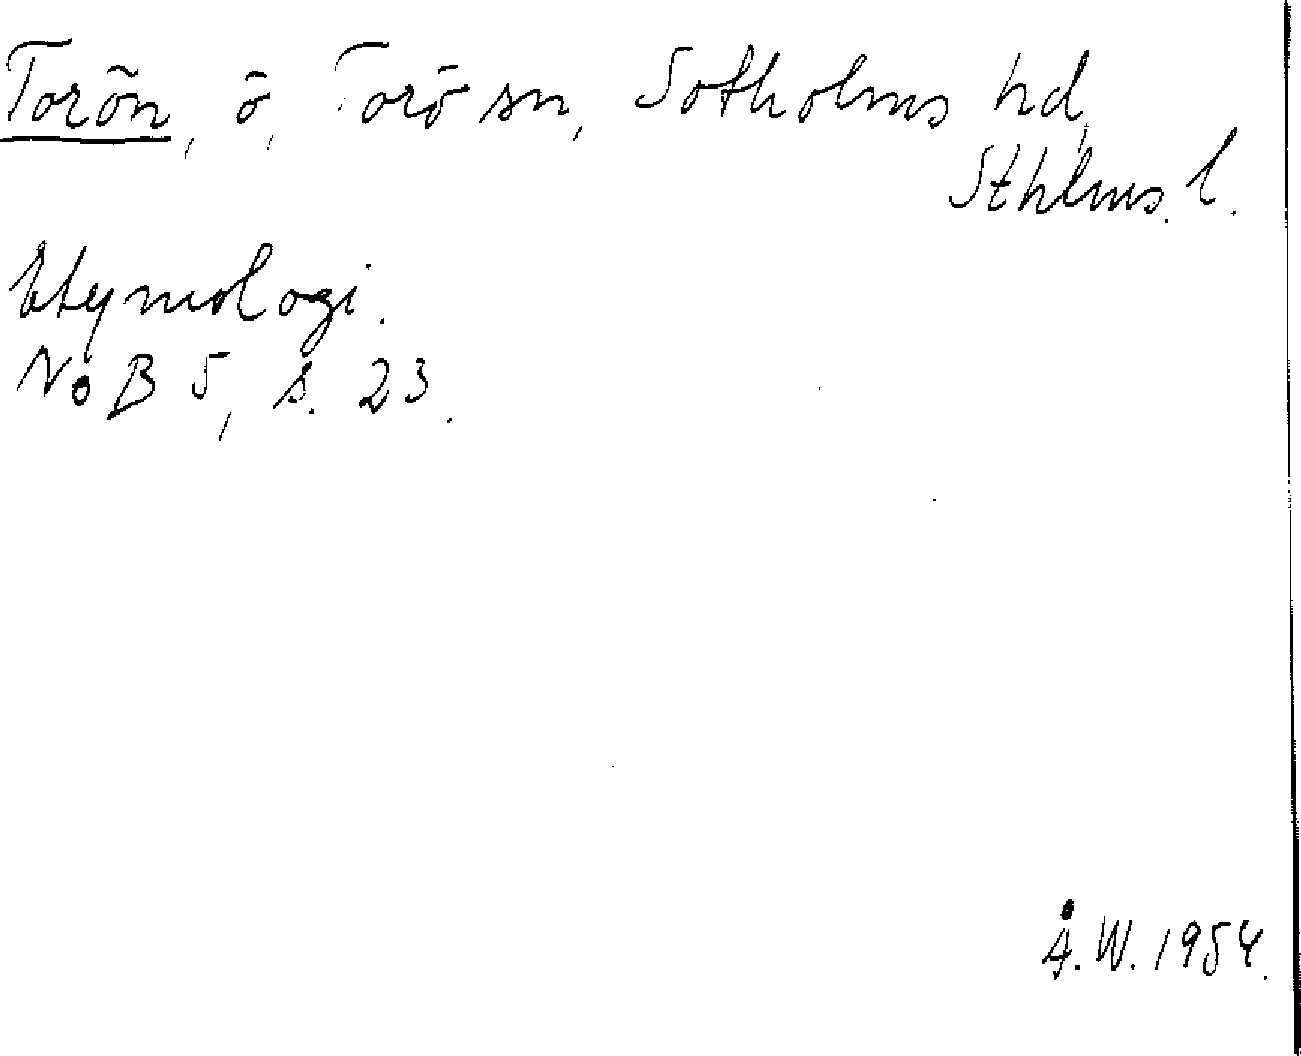 Torön, ö, Torö sn, Sotholms hd,
Sthlms. l.
Etymologi.
NoB 5, s. 23.
Å.W. 1954.